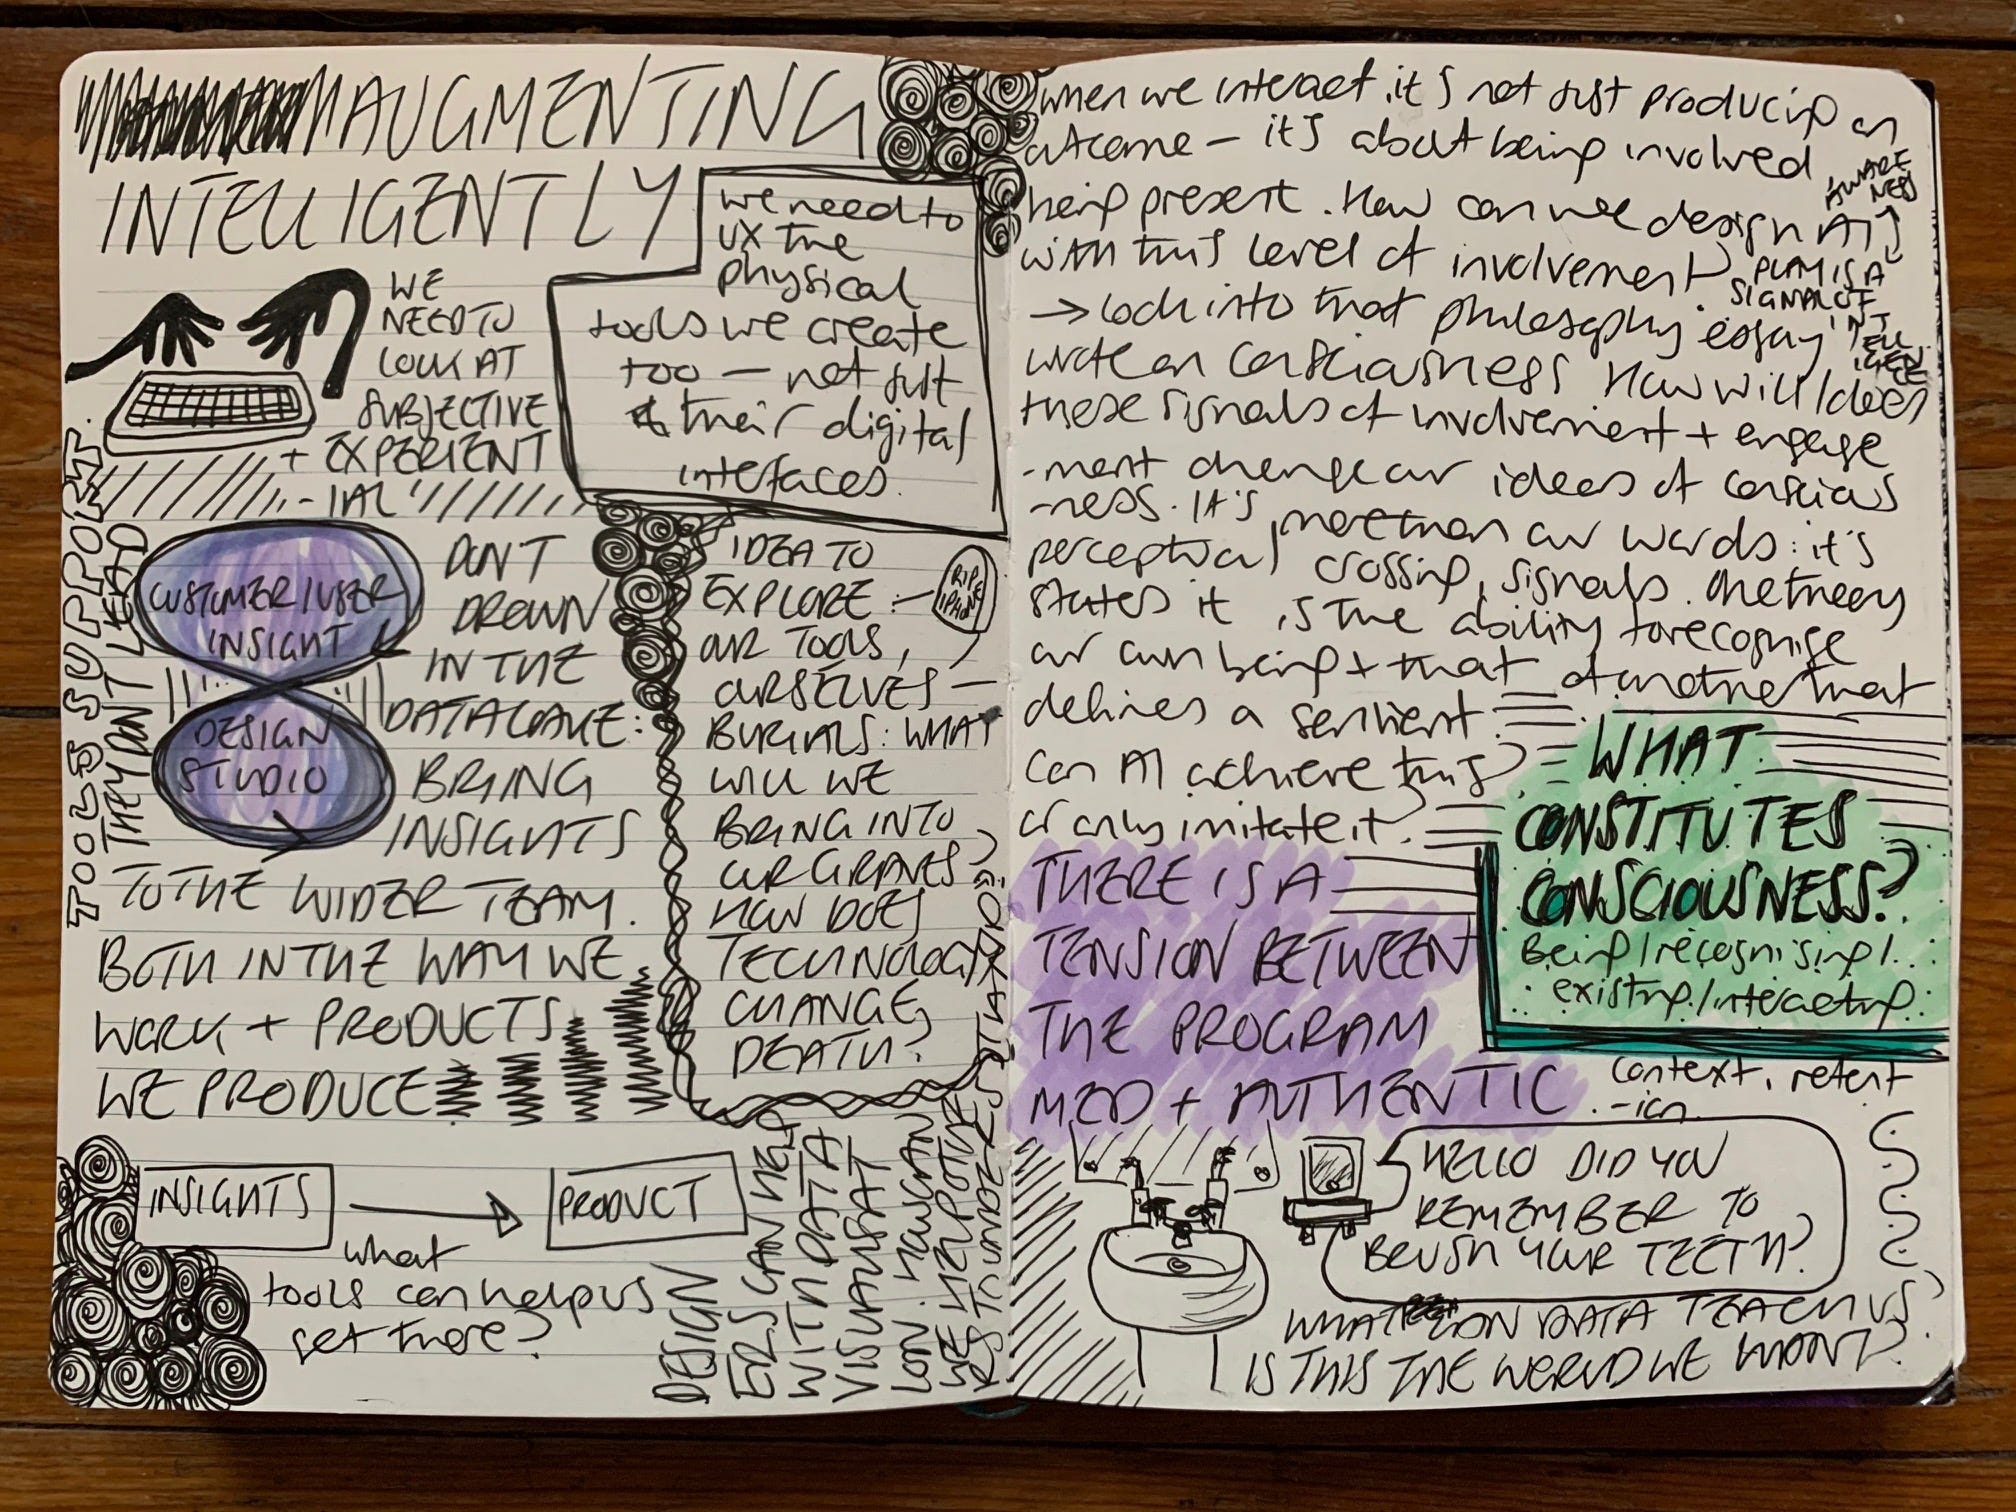 AUGMENTING
INTELLIGENTLY
we need to
UX the
physical
tools we create
too – not just
their digital
interfaces.
WE
NEED TO
LOOK AT
SUBJECTIVE
+ EXPERIENT
-IAL
TOOLS SUPPORT.
THEY DON'T LEAD
CUSTOMER/USER
INSIGHT
DESIGN
STUDIO
DON'T
DROWN
IN THE
DATA LAKE:
BRING
INSIGHTS
TO THE WIDER TEAM.
BOTH IN THE WAY WE
WORK + PRODUCTS
WE PRODUCE
IDEA TO
EXPLORE :-
OUR TOOLS,
OURSELVES –
BURIALS: WHAT
WILL WE
BRING INTO
OUR GRAVES?
HOW DOES
TECHNOLOGY
CHANGE
DEATH?
RIP
IPHONE
INSIGHTS
PRODUCT
what
tools can help us
get there?
DESIGN
ERS CAN HELP
WITH DATA
VISUALISAT
ION. HOW CAN
WE HELP OTHE
RS TO UNDERSTAND
when we interact, it's not just producing an
outcome – it's about being involved
being present. How can we design AI
with this level of involvement?
AWARE
NESS
PLAY IS A
SIGNAL OF
INT
ELL
IGEN
CE
→ look into that philosophy essay I
wrote on consciousness How will/does
these signals of involvement + engage
-ment change our ideas of conscious
-ness. It's more than our words: it's
perceptual crossing, signals. One theory
states it is the ability to recognise
our own being + that of another that
defines a sentient.
Can AI achieve this?
or only imitate it?
WHAT
CONSTITUTES
CONSCIOUSNESS?
Being/recognising/...
existing/interacting
THERE IS A
TENSION BETWEEN
THE PROGRAM
MED + AUTHENTIC
context, retent
-ion
HELLO DID YOU
REMEMBER TO
BRUSH YOUR TEETH?
WHAT CAN DATA TEACH US?
IS THIS THE WORLD WE WANT?